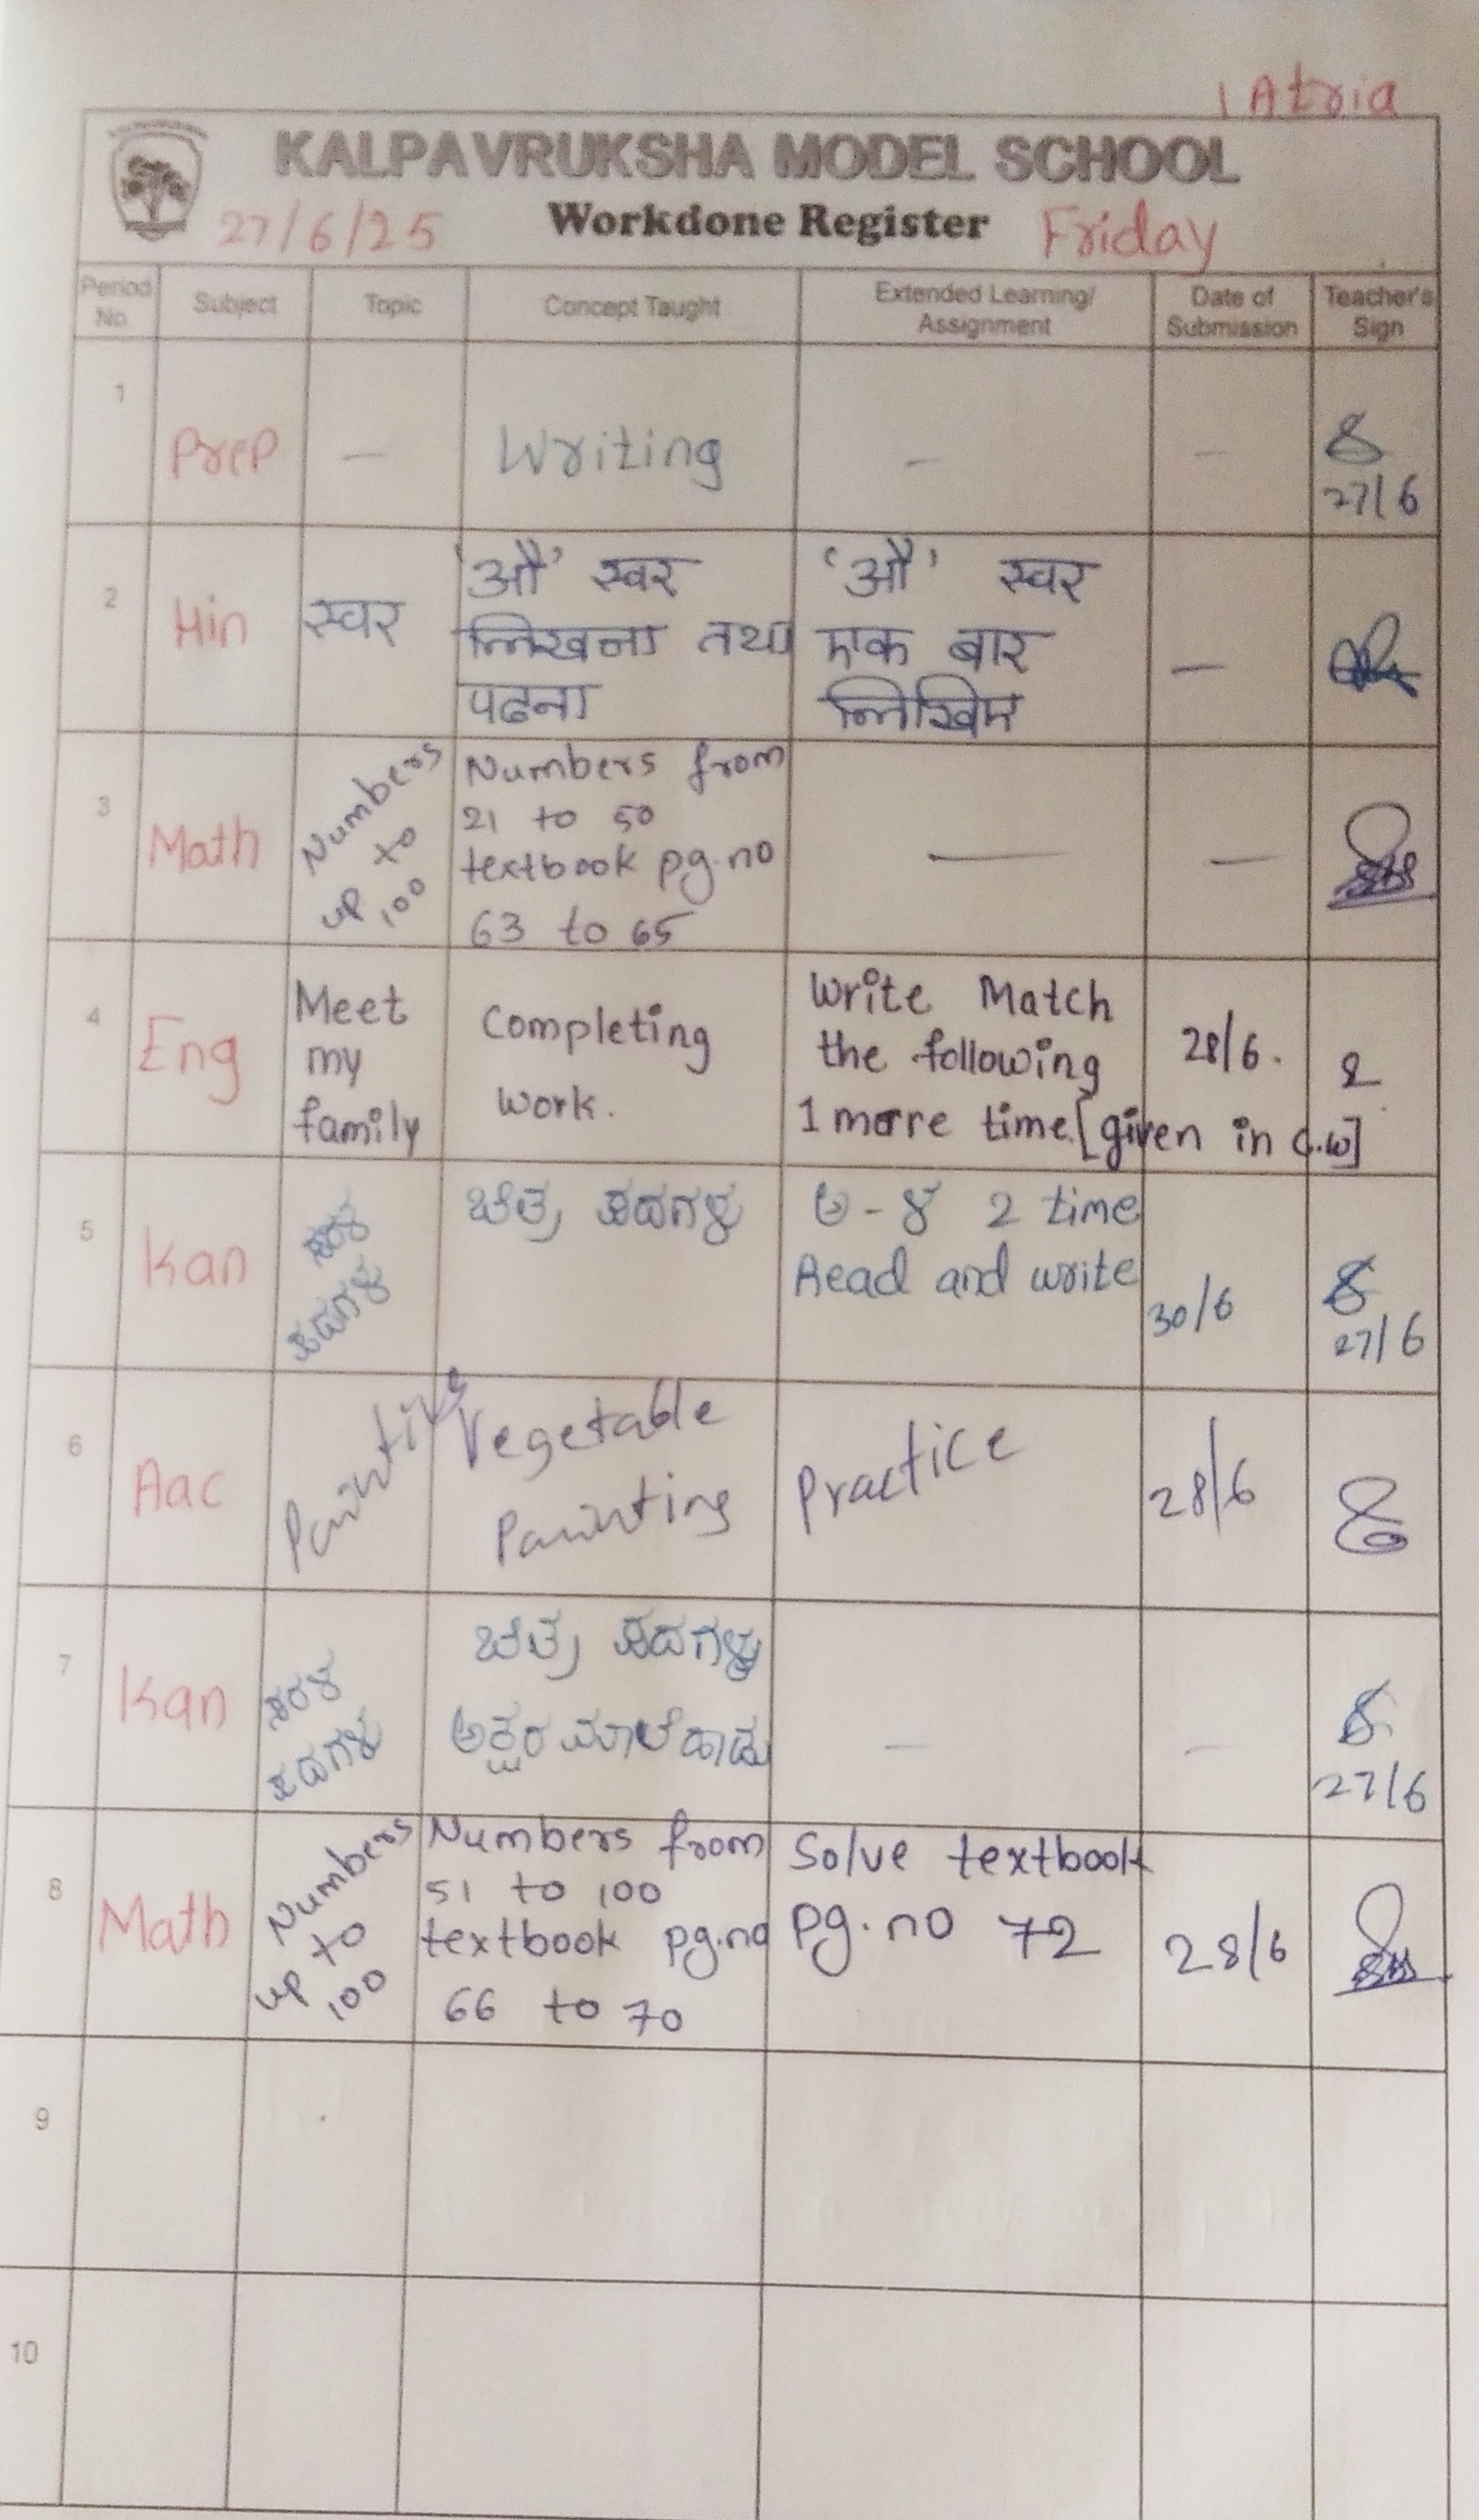 1 Atria
KALPAVRUKSHA MODEL SCHOOL
27/6/25 Workdone Register Friday
Period No. Subject Topic Concept Taught Extended Learning/ Assignment Date of Submission Teacher's Sign
1 Prep — Writing — — 27/6
2 Hin स्वर 'औ' स्वर लिखना तथा पढना 'औ' स्वर एक बार लिखिए —
3 Math Numbers up to 100 Numbers from 21 to 50 textbook pg.no 63 to 65 — —
4 Eng Meet my family Completing work. Write Match the following 1 more time [given in c.w] 28/6.
5 Kan ಸರಳ ಪದಗಳು ಚಿತ್ರ ಪದಗಳು ಅ - ಳ 2 time Read and write 30/6 27/6
6 Aac Painting Vegetable Painting Practice 28/6
7 Kan ಸರಳ ಪದಗಳು ಚಿತ್ರ ಪದಗಳು ಅಕ್ಷರ ಮಾಲೆ ಹಾಡು — — 27/6
8 Math Numbers up to 100 Numbers from 51 to 100 textbook pg.no 66 to 70 Solve textbook pg.no 72 28/6
9
10